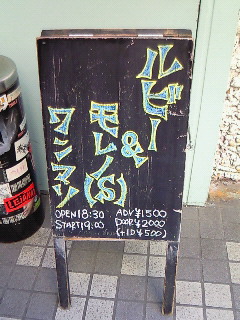 ルビー
&
モレノ(S)
ワンマン
OPEN18:30 ADV¥1500
START19:00 DOOR¥2000
(+1D¥500)